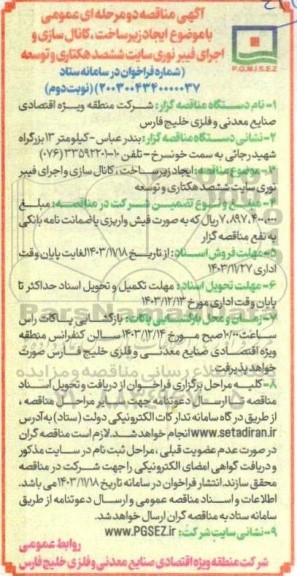 آگهی مناقصه دو مرحله ای عمومی
با موضوع ایجاد زیرساخت، کانال سازی و
اجرای فیبر نوری سایت ششصد هکتاری و توسعه
P.G.M.I.S.E.Z
(شماره فراخوان در سامانه ستاد
۲۰۰۳۰۰۴۳۴۰۰۰۰۰۳۷) (نوبت دوم)
۱- نام دستگاه مناقصه گزار: شرکت منطقه ویژه اقتصادی
صنایع معدنی و فلزی خلیج فارس
۲- نشانی دستگاه مناقصه گزار: بندر عباس- کیلومتر ۱۳ بزرگراه
شهید رجائی به سمت خونسرخ - تلفن ۱۰-۳۳۵۹۲۲۰۱ (۰۷۶)
۳- موضوع مناقصه: ایجاد زیرساخت، کانال سازی و اجرای فیبر
نوری سایت ششصد هکتاری و توسعه
۴- مبلغ و نوع تضمین شرکت در مناقصه: مبلغ
۷،۸۹۷،۴۰۰،۰۰۰ ریال که به صورت فیش واریزی یا ضمانت نامه بانکی
به نفع مناقصه گزار
۵- مهلت فروش اسناد: از تاریخ ۱۴۰۳/۱۱/۱۸ لغایت پایان وقت
اداری ۱۴۰۳/۱۱/۲۷
۶- مهلت تحویل اسناد: مهلت تکمیل و تحویل اسناد حداکثر تا
پایان وقت اداری مورخ ۱۴۰۳/۱۲/۱۳
۷- زمان و محل بازگشایی پاکات: بازگشایی پاکات راس
ساعت ۱۰/۰۰ صبح مورخ ۱۴۰۳/۱۲/۱۴ سالن کنفرانس منطقه
ویژه اقتصادی صنایع معدنی و فلزی خلیج فارس صورت
خواهد پذیرفت
۸- کلیه مراحل برگزاری فراخوان از دریافت و تحویل اسناد
مناقصه تا ارسال دعوتنامه جهت سایر مراحل مناقصه،
از طریق درگاه سامانه تدارکات الکترونیکی دولت (ستاد) به آدرس
www.setadiran.ir انجام خواهد شد. لازم است مناقصه گران
در صورت عدم عضویت قبلی، مراحل ثبت نام در سایت مذکور
و دریافت گواهی امضای الکترونیکی را جهت شرکت در مناقصه
محقق سازند. انتشار فراخوان در سامانه تاریخ ۱۴۰۳/۱۱/۱۸ می باشد.
اطلاعات و اسناد مناقصه عمومی و ارسال دعوتنامه از طریق
سامانه ستاد به مناقصه گران ارسال خواهد شد.
۹- نشانی سایت شرکت: www.PGSEZ.ir
روابط عمومی
شرکت منطقه ویژه اقتصادی صنایع معدنی و فلزی خلیج فارس